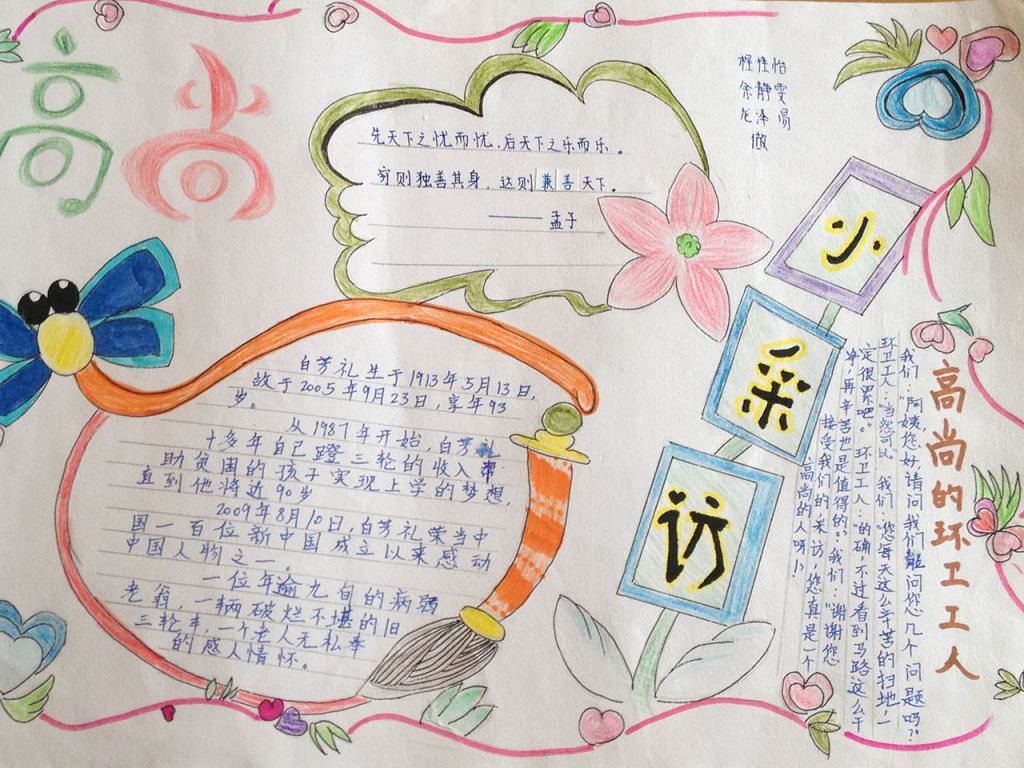 高尚
先天下之忧而忧，后天下之乐而乐。
穷则独善其身，达则兼善天下。
——孟子
程佳怡
余静雯
龙泽
做
小采访
白芳礼生于1913年5月13日，
故于2005年9月23日，享年93
岁。
从1987年开始，白芳礼
十多年自己蹬三轮的收入帮
助贫困的孩子实现上学的梦想，
直到他将近90岁
2009年8月10日，白芳礼荣当中
国一百位新中国成立以来感动
中国人物之一。
一位年逾九旬的病弱
老翁，一辆破烂不堪的旧
三轮车，一个老人无私奉
的感人情怀。
高尚的环卫工人
我们：“阿姨您好，请问我们能问您几个问题吗？”
环卫工人：“当然可以。”我们：“您每天这么辛苦的扫地，一
定很累吧。”环卫工人：“的确，不过看到马路这么干
净，再辛苦也是值得的。”我们：“谢谢您
接受我们的采访，您真是一个
高尚的人呀！”